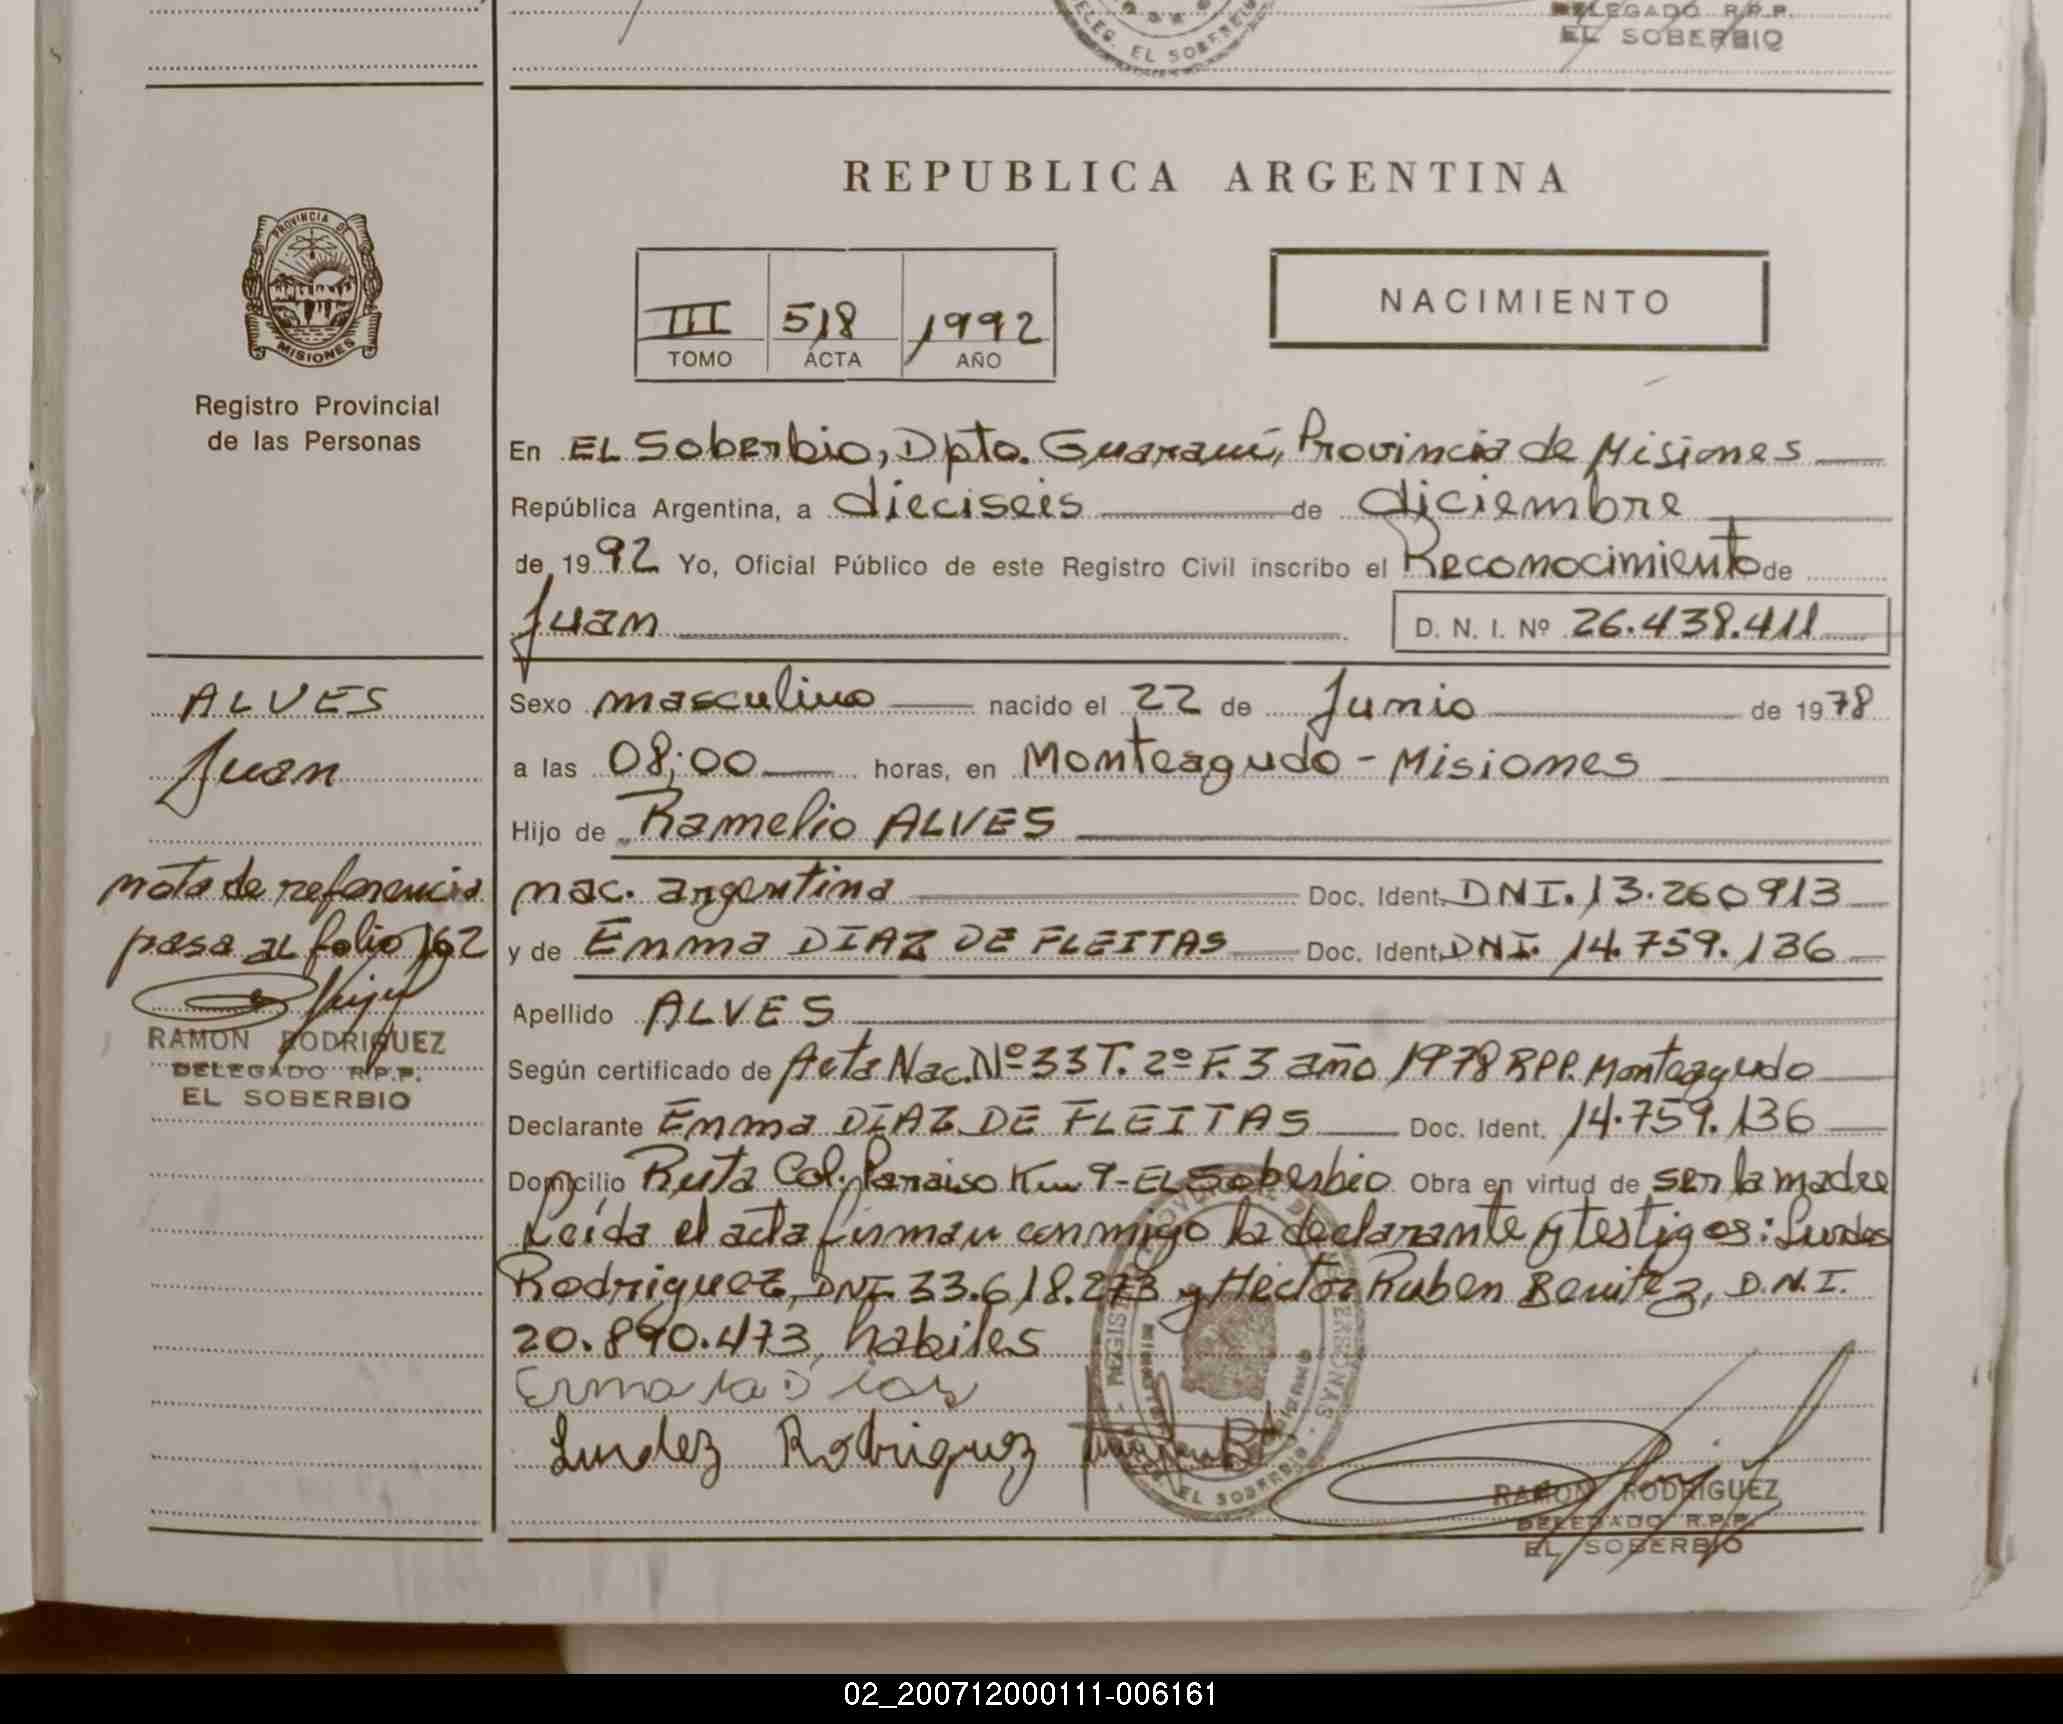 DELEG. EL SOBERBIO
DELEGADO R.P.P.
EL SOBERBIO
REPUBLICA ARGENTINA
PROVINCIA DE
MISIONES
Registro Provincial
de las Personas
III 518 1992
TOMO ACTA AÑO
NACIMIENTO
En EL Soberbio, Dpto. Guaraní, Provincia de Misiones
República Argentina, a dieciseis de diciembre
de 1992 Yo, Oficial Público de este Registro Civil inscribo el Reconocimiento de
Juan D. N. I. Nº 26.438.411
ALVES
Juan
Sexo masculino nacido el 22 de Junio de 1978
a las 08:00 horas, en Monteagudo - Misiones
Hijo de Ramelio ALVES
nota de referencia
pasa al folio 162
RAMON RODRIGUEZ
DELEGADO R.P.P.
EL SOBERBIO
nac. argentina Doc. Ident. DNI. 13.260913
y de Emma DIAZ DE FLEITAS Doc. Ident. DNI. 14.759.136
Apellido ALVES
Según certificado de Acta Nac. Nº 33 T. 2º F. 3 año 1978 RPP. Monteagudo
Declarante Emma DIAZ DE FLEITAS Doc. Ident. 14.759.136
Domicilio Ruta Col. Paraiso Km 9 - EL Soberbio Obra en virtud de ser la madre
Leída el acta firman conmigo la declarante y testigos: Lurdes
Rodriguez, DNI. 33.618.273 y Hector Ruben Benitez, D.N.I.
20.890.473, habiles
Lurdez Rodriguez
RAMON RODRIGUEZ
DELEGADO R.P.P.
EL SOBERBIO
02_200712000111-006161